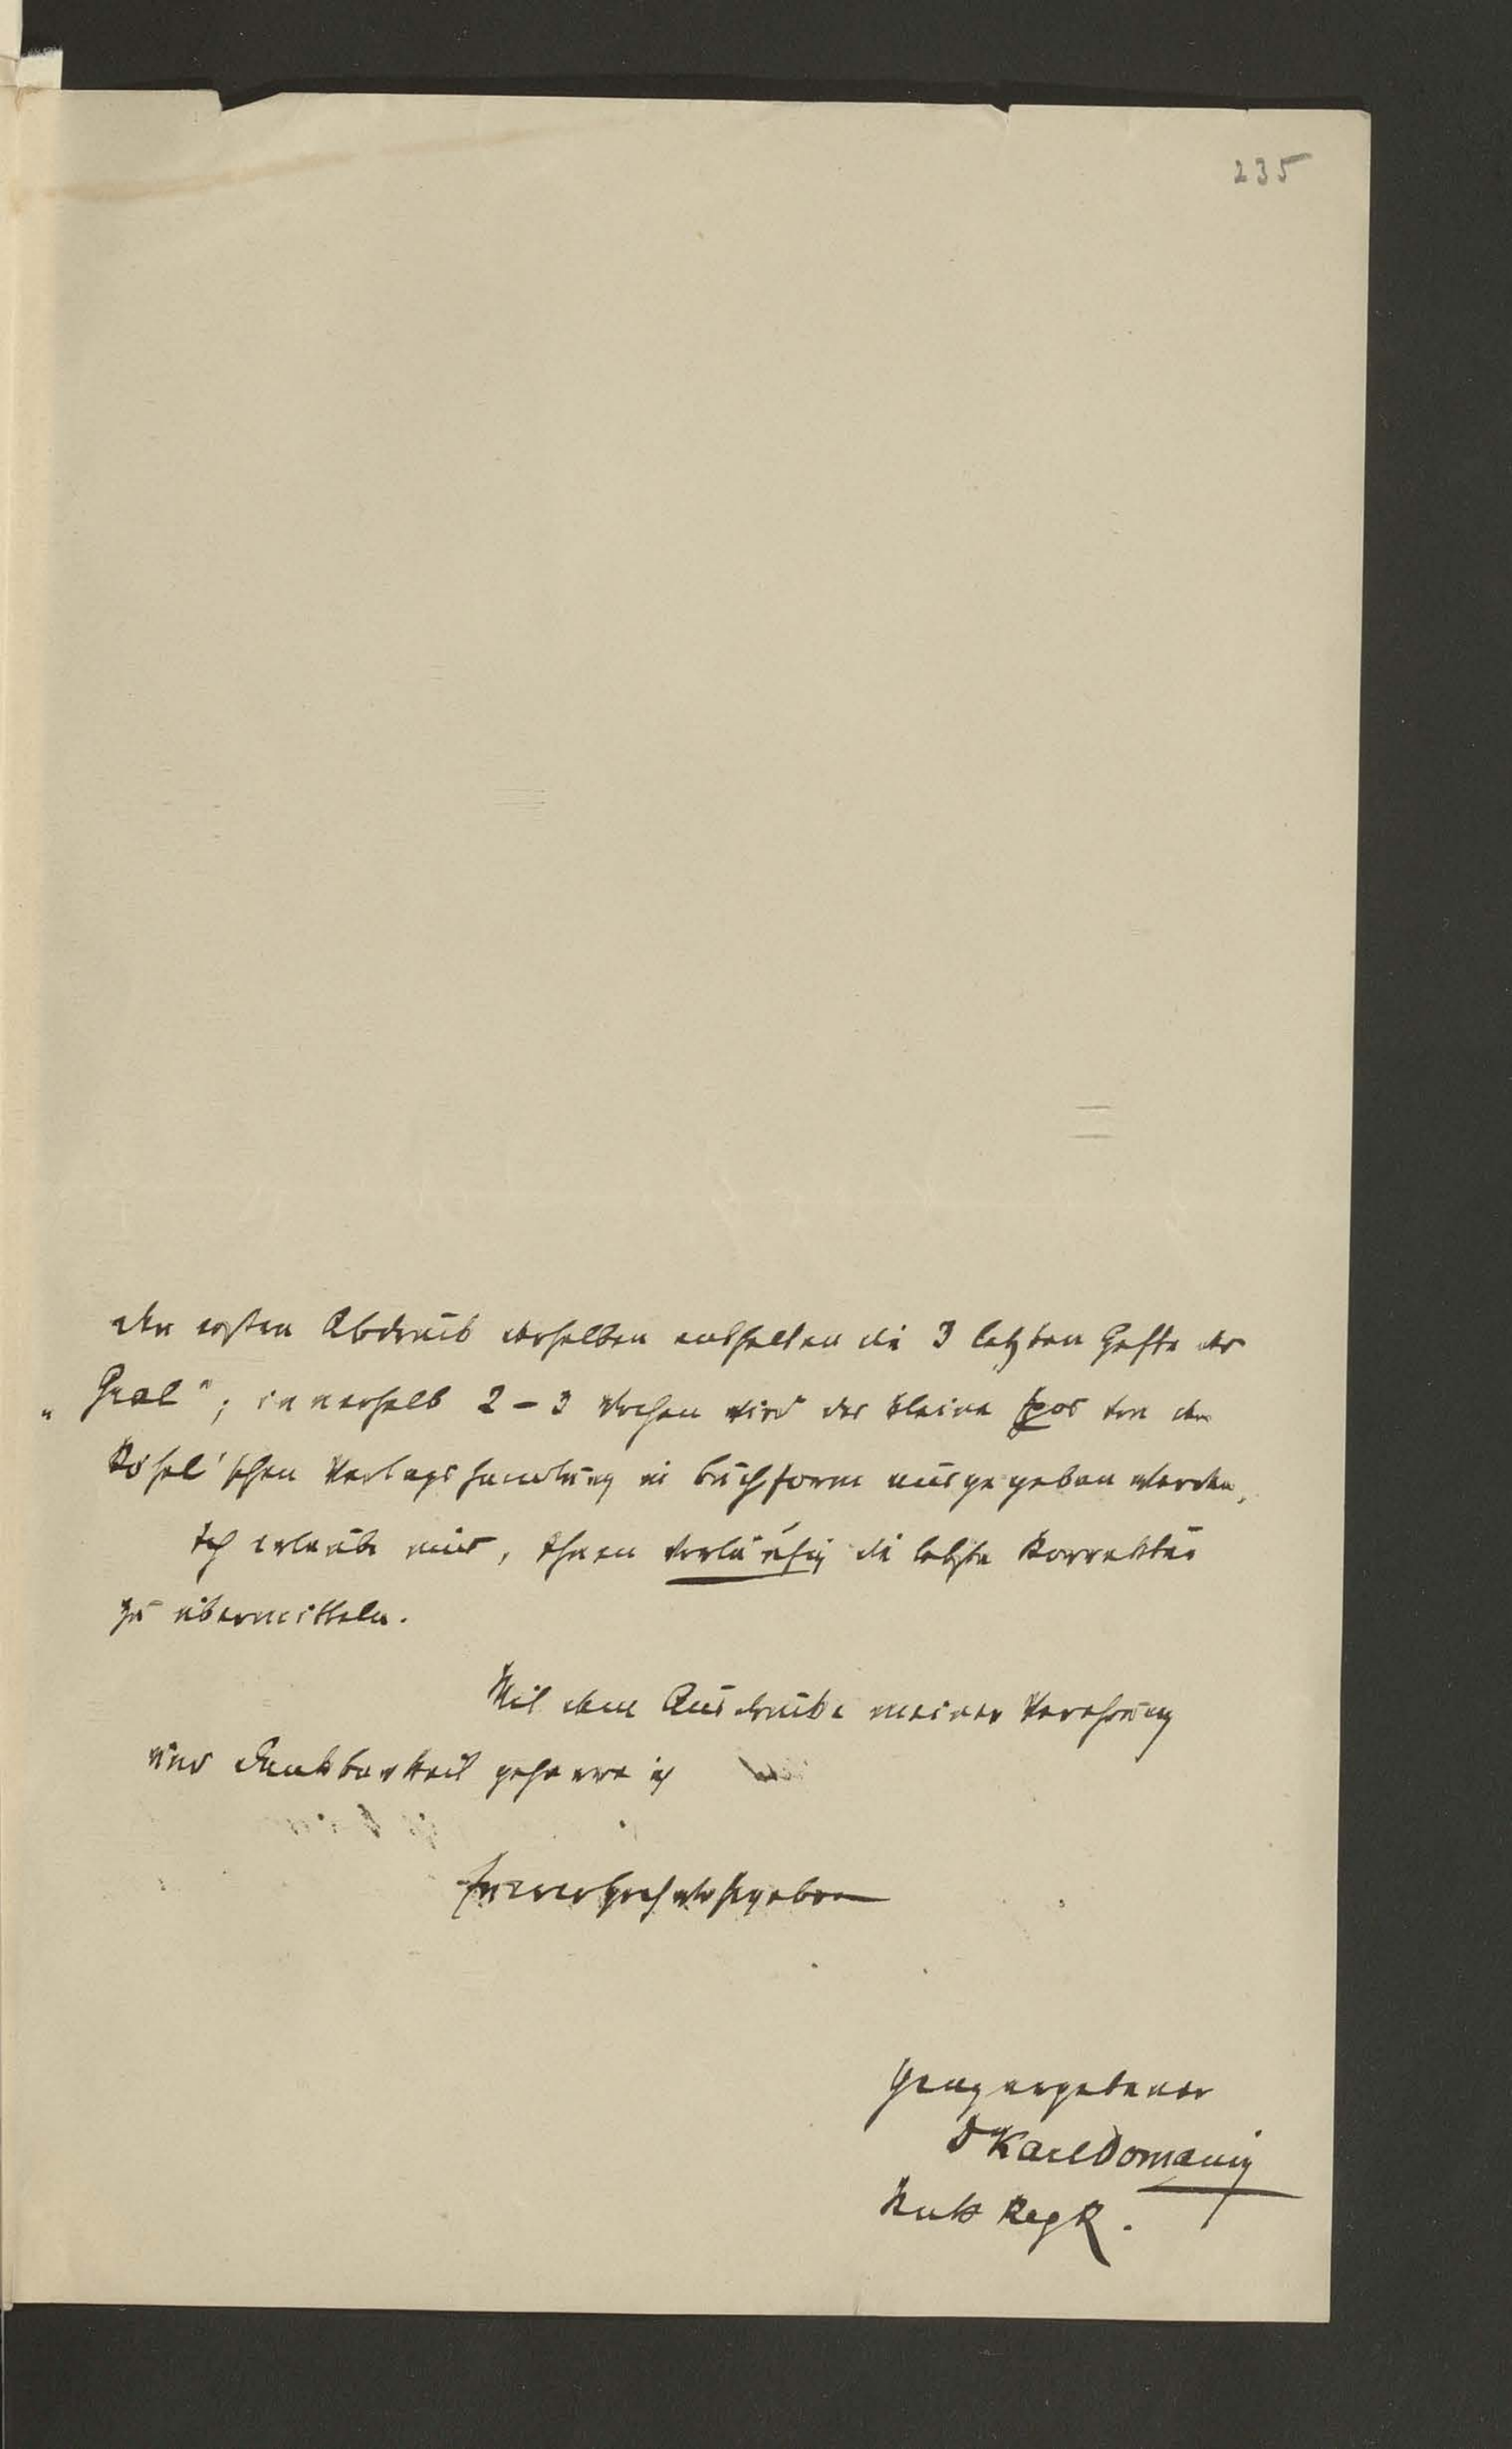 235
den ersten Abdruck desselben enthalten die 3 letzten Hefte des
„Gral"; innerhalb 2 – 3 Wochen wird das kleine Epos von der
Kösel'schen Verlagshandlung in Buchform ausgegeben werden,
Ich erlaube mir, Ihnen vorläufig die letzte Korrektur
zu übermitteln.
Mit dem Ausdrucke meiner Verehrung
und Dankbarkeit geharre ich
Euer Hochwohlgeboren
Ganz ergebener
Dr Karl Domanig
RegR.